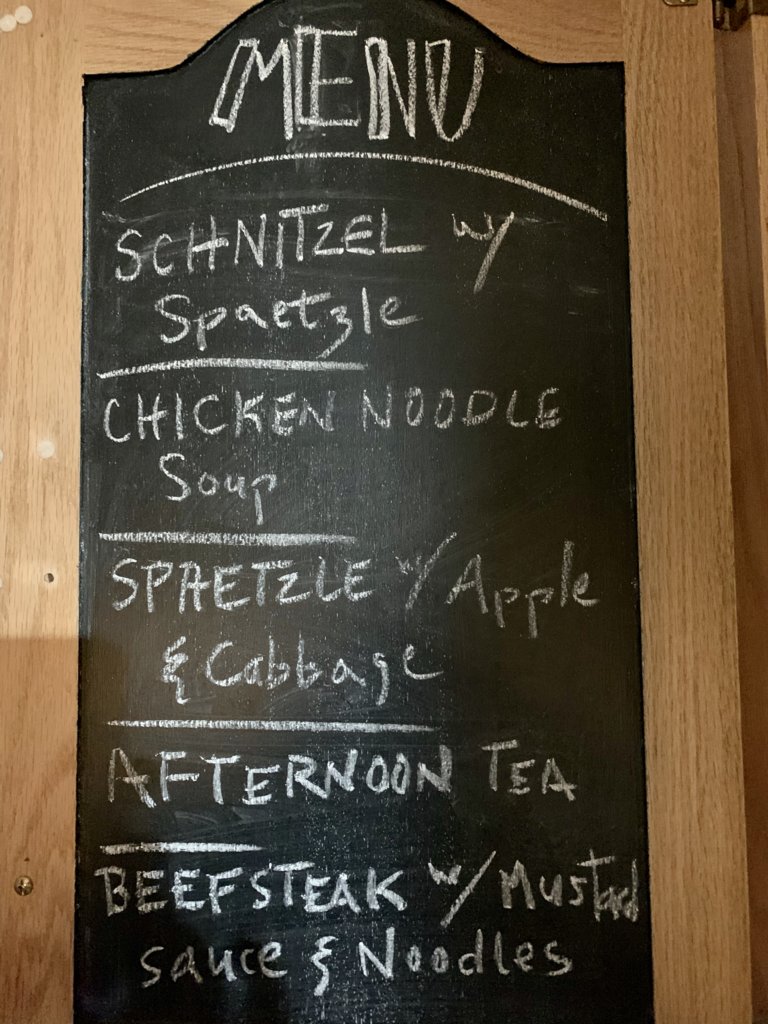 MENU
SCHNITZEL w/
Spaetzle
CHICKEN NOODLE
Soup
SPAETZLE w/ Apple
& Cabbage
AFTERNOON TEA
BEEFSTEAK w/ Mustard
sauce & Noodles